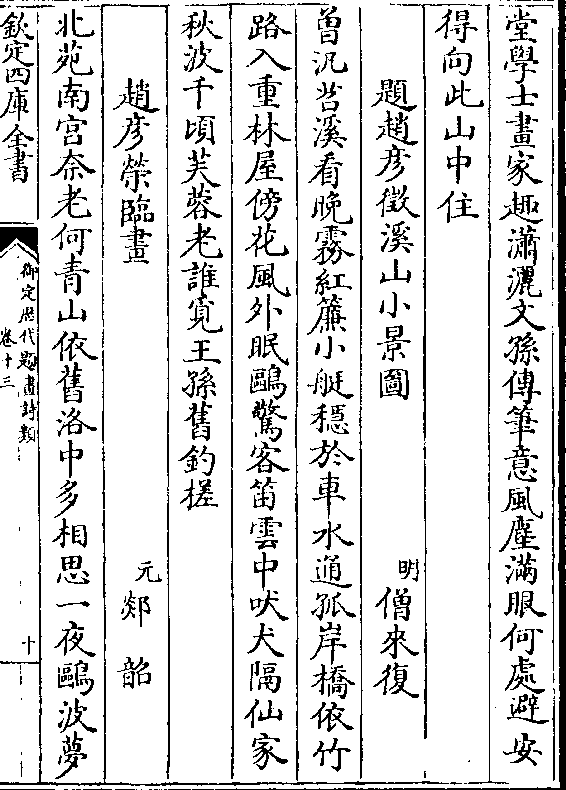 堂學士畫家趣瀟灑文孫傳筆意風塵滿眼何處避安
得向此山中住
題趙彦徵溪山小景圖
明 僧來復
曽汎苕溪看晚霧紅簾小艇穩於車水通孤岸橋依竹
路入重林屋傍花風外眠鷗驚客笛雲中吠犬隔仙家
秋波千頃芙蓉老誰覓王孫舊釣槎
趙彦榮臨畫
元 郯 韶
北苑南宫奈老何青山依舊洛中多相思一夜鷗波夢
欽定四庫全書
御定歴代題畫詩類
卷十三
十